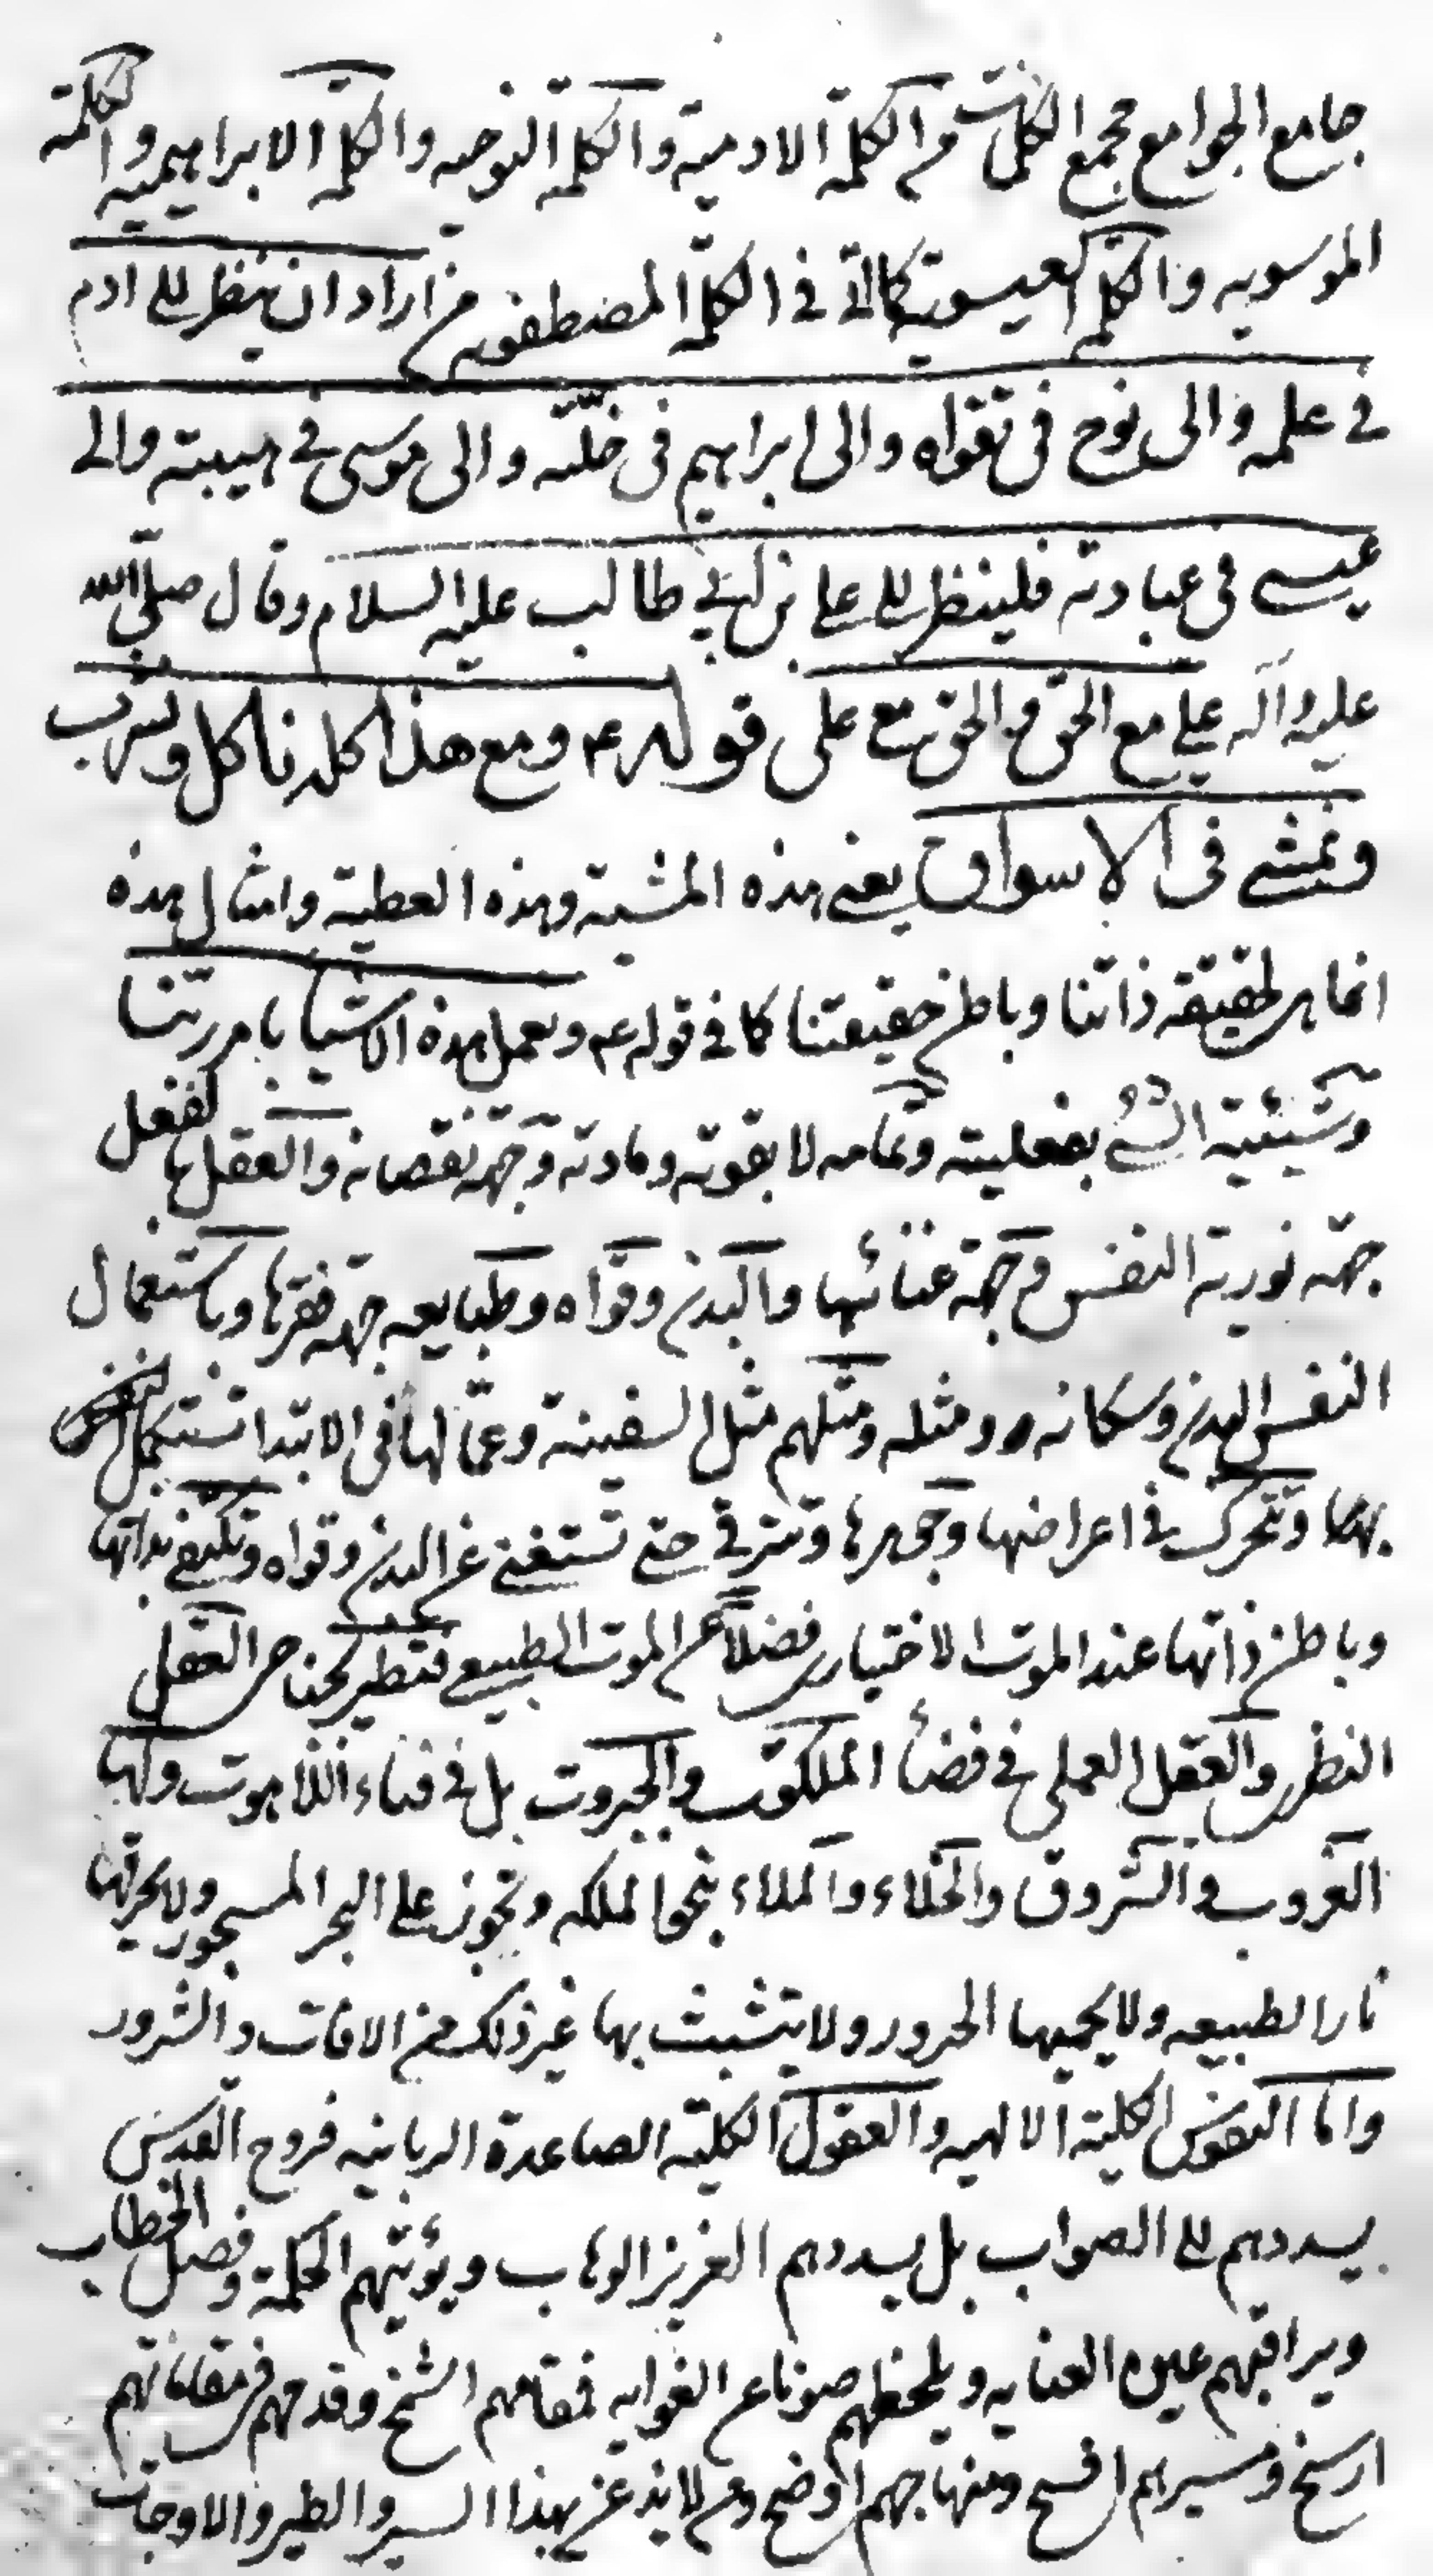 جامع الجوامع مجمع الكلمات من الكلمة الادمية والكلمة النوحيه والكلمة الابراهيمية والكلمة
الموسويه والكلمة العيسوية كالاتى فى الكلمة المصطفويه من اراد ان ينظر الى ادم
فى علمه والى نوح فى تقواه والى ابراهيم فى خلته والى موسى فى هيبته والى
عيسى فى عبادته فلينظر الى على بن ابى طالب عليه السلام وقال صلى الله
عليه وآله على مع الحق والحق مع على قوله ع ومع هذا كله ناكل ونشرب
ونمشى فى الاسواق يعنى هذه المشية وهذه العطية وامثال هذه
انما هى لحقيقة ذاتنا وباطن حقيقتنا كما فى قوله ع ونعمل هذه الاشيا بامر ربنا
وشيئية الشئ بفعليته وتمامه لا بقوته ومادته وجهة نقصانه والعقل بالفعل
جهة نورية النفس وجهة غنائها والبدن وقواه وطبايعه جهة فقرها وباستعمال
النفس البدن وسكانه ومثله ومثلهم مثل السفينة وعمالها فى الابتدا تستكمل النفس
بهما وتتحرك فى اعراضها وجوهرها وتترقى حتى تستغنى عن البدن وقواه وتكتفى بذاتها
وباطن ذاتها عند الموت الاختيارى فضلا عن الموت الطبيعى فتطير بجناحى العقل
النظرى والعقل العملى فى فضأ الملكوت والجبروت بل فى فناء اللاهوت ولها
الغروب والشروق والخلاء والملاء بنحو الملكه وتجوز على البحر المسجور ولا يحرقها
نار الطبيعه ولا يحميها الحرور ولا يتشبث بها غير ذلك من الافات والشرور
واما النفوس الكلية الالهيه والعقول الكلية الصاعدة الربانيه فروح القدس
يسددهم الى الصواب بل يسددهم العزيز الوهاب ويؤتيهم الحكمة وفصل الخطاب
ويراقبهم عين العنايه ويلحظهم صونا عن الغوايه فمقامهم اشمخ وقدمهم فى مقاماتهم
ارسخ ومسيرهم افسح ومنهاجهم اوضح وهذا السير والطير والاوجات